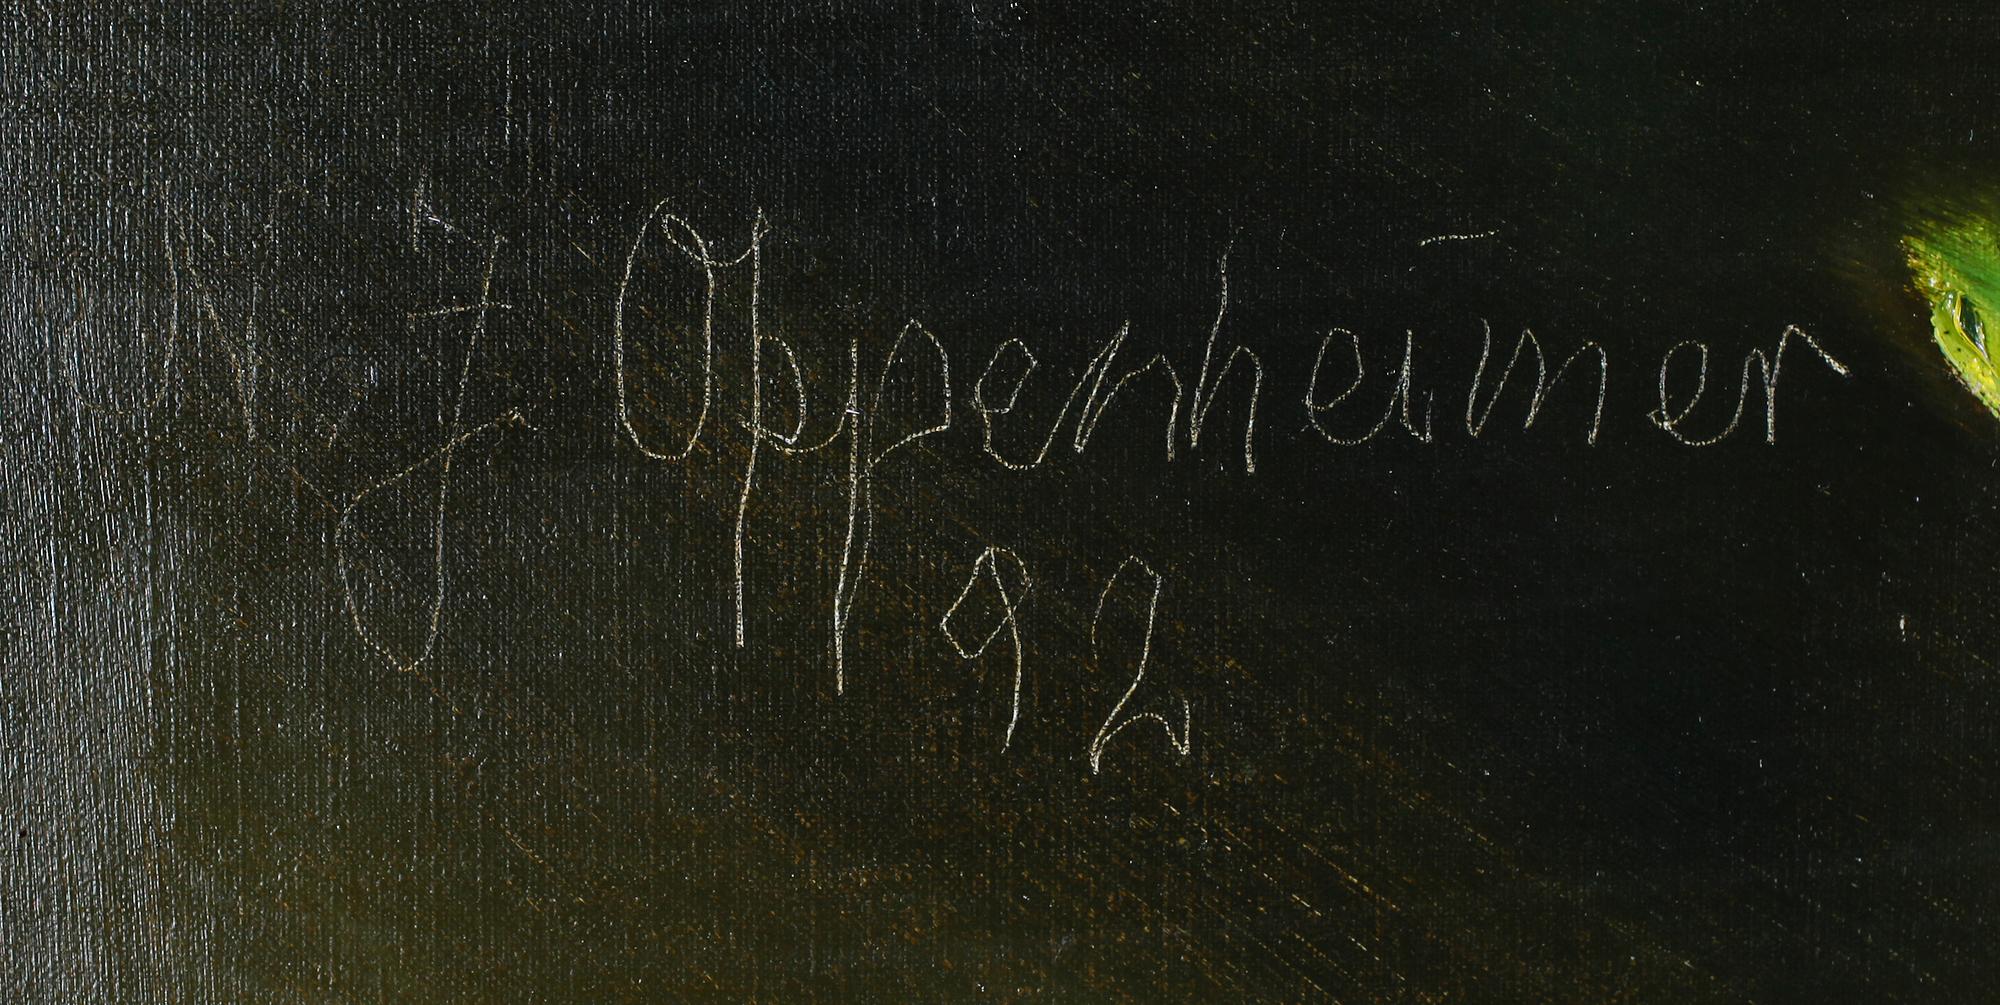 J Oppenheimer
92